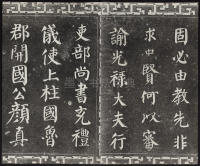 固必由教先非
求忠賢何以審
諭光祿大夫行
吏部尚書充禮
儀使上柱國魯
郡開國公顏真